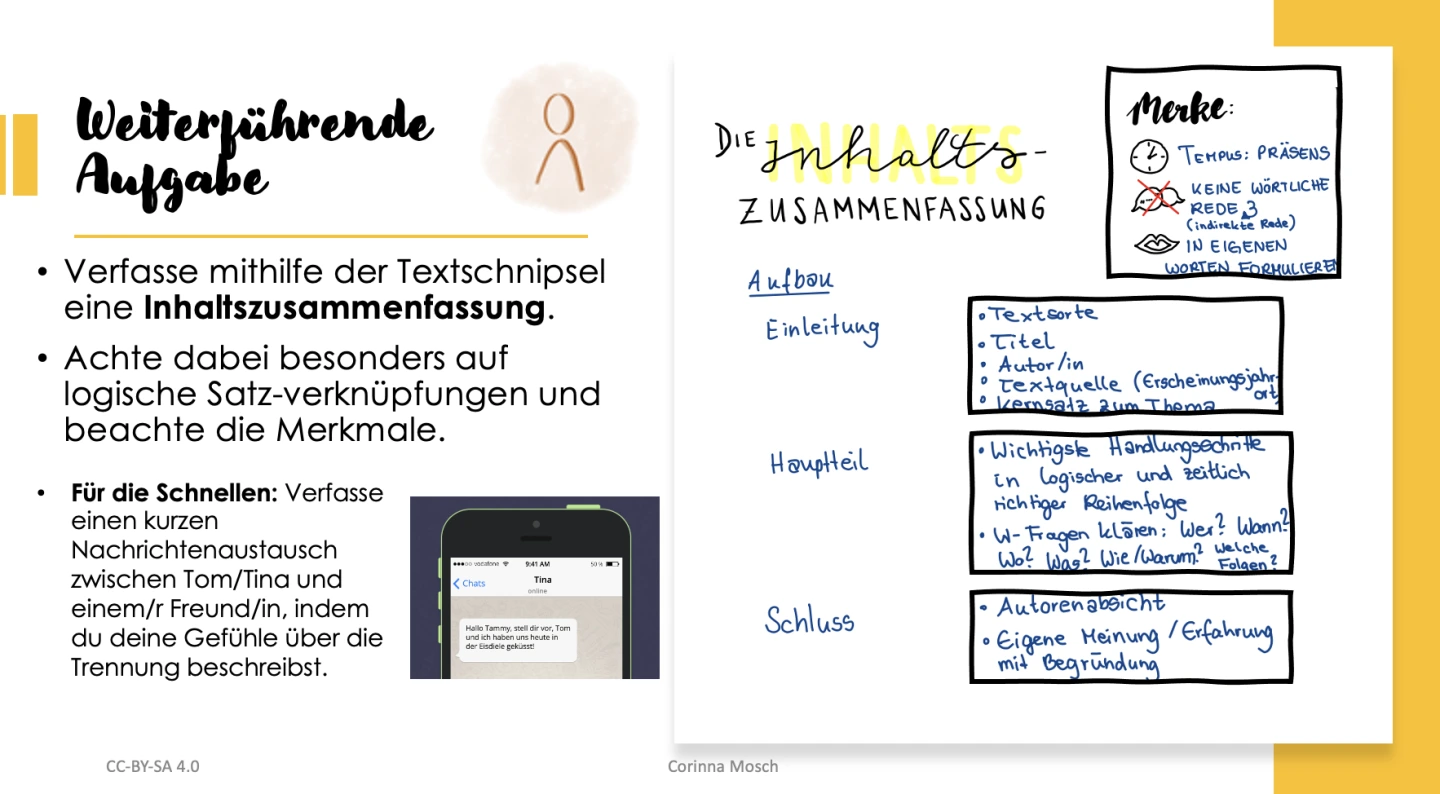 Weiterführende
Aufgabe
• Verfasse mithilfe der Textschnipsel
eine Inhaltszusammenfassung.
• Achte dabei besonders auf
logische Satz-verknüpfungen und
beachte die Merkmale.
• Für die Schnellen: Verfasse
einen kurzen
Nachrichtenaustausch
zwischen Tom/Tina und
einem/r Freund/in, indem
du deine Gefühle über die
Trennung beschreibst.
●●●○○ vodafone 9:41 AM 50%
Chats Tina
online
Hallo Tammy, stell dir vor, Tom
und ich haben uns heute in
der Eisdiele geküsst!
DIE INHALTS
Inhalts-
ZUSAMMENFASSUNG
Merke:
TEMPUS: PRÄSENS
KEINE WÖRTLICHE
REDE
(indirekte Rede)
IN EIGENEN
WORTEN FORMULIEREN
Aufbau
Einleitung
• Textsorte
• Titel
• Autor/in
• Textquelle (Erscheinungsjahr-
ort)
• Kernsatz zum Thema
Hauptteil
• Wichtigste Handlungsschritte
in logischer und zeitlich
richtiger Reihenfolge
• W-Fragen klären: Wer? Wann?
Wo? Was? Wie/Warum? Welche
Folgen?
Schluss
• Autorenabsicht
• Eigene Meinung / Erfahrung
mit Begründung
CC-BY-SA 4.0
Corinna Mosch